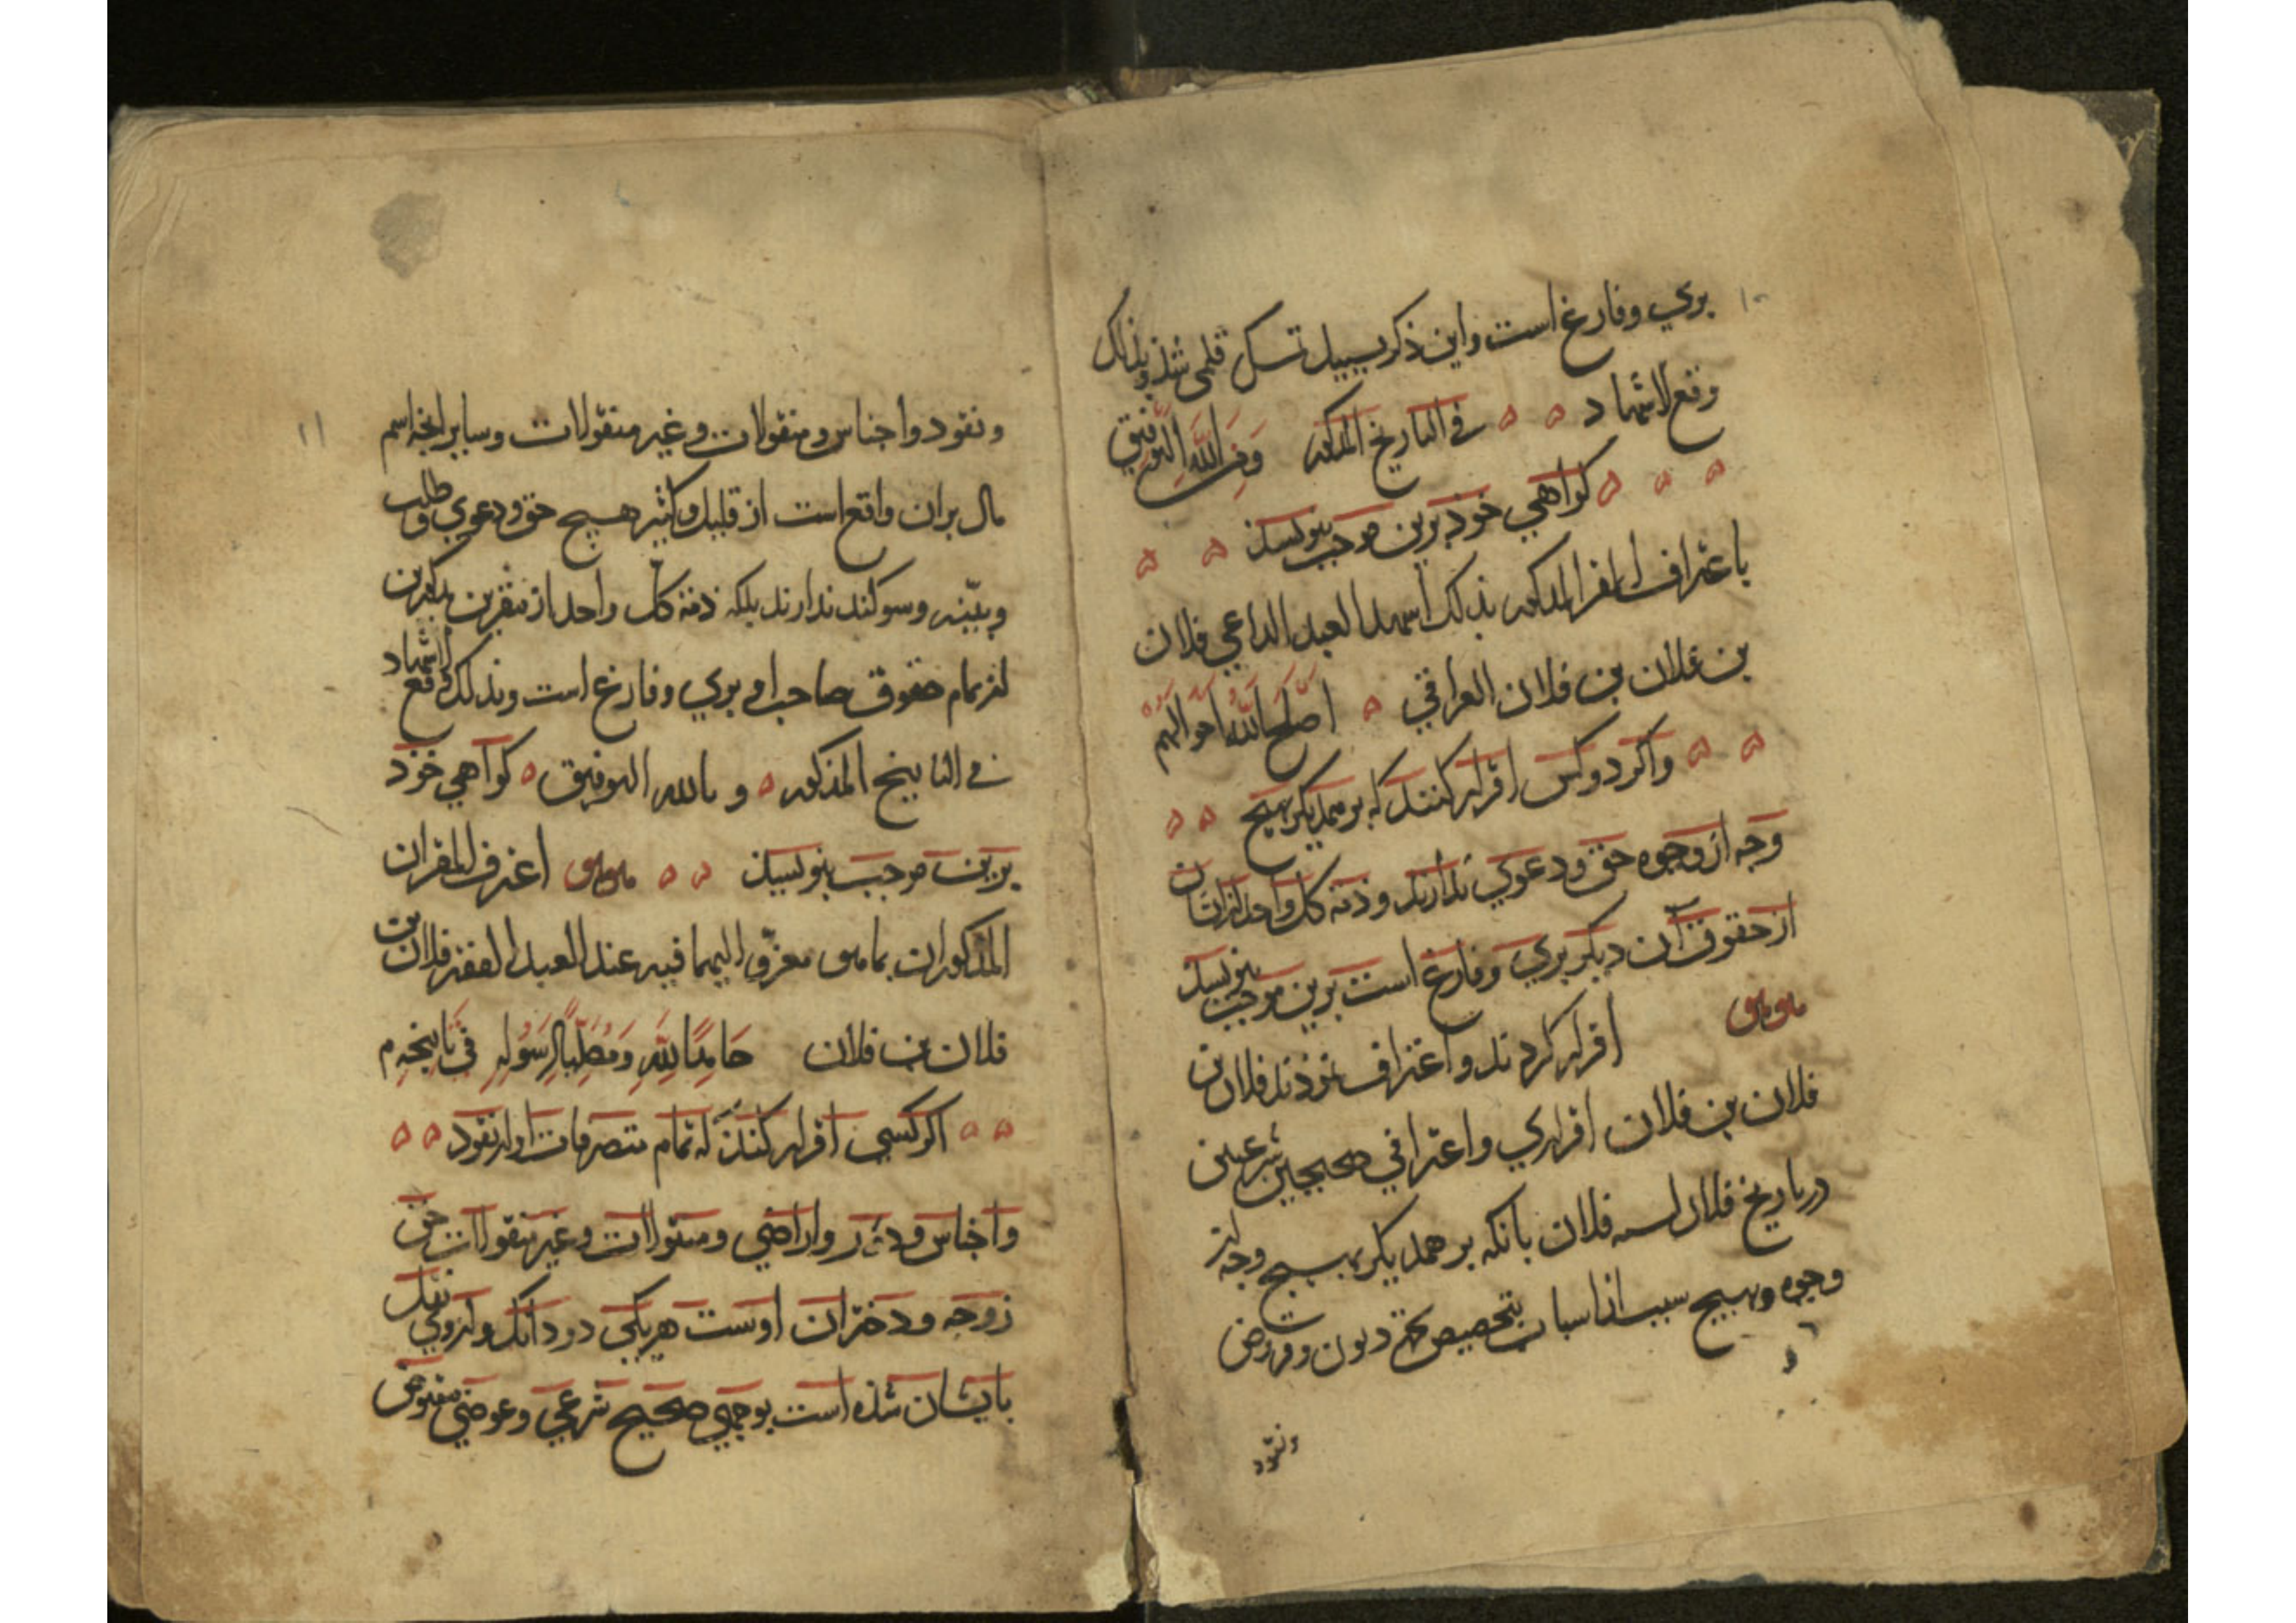 ۱۰
بري وفارغ است واين ذكر بسبيل تمسك قلمي شذ وبذلك
وقع الاشهاد في التاريخ المذكور ومن الله التوفيق
كواهي خوذ برين موجب بنويسند
باعتراف المقر المذكور بذلك اشهد العبد الداعي فلان
بن فلان بن فلان العراقي اصلح الله احوالهم
واكر دو كس اقرار كنند كه بر همديكر بهيج
وجه از وجوه حق ودعوي ندارند وذمه كل واحد از ايشان
از حقوق آن ديكر بري وفارغ است برين موجب بنويسند
اقرار كردند واعتراف نموذند فلان بن
فلان بن فلان اقراري واعترافي صحيحين شرعيين
در تاريخ فلان لسنه فلان بانكه بر همديكر بهيج وجه از
وجوه وبهيج سبب از اسباب بتخصيص بجهة ديون وقروض
ونقود
۱۱
ونقود واجناس ومنقولات وغير منقولات وساير انچه اسم
مال بر ان واقع است از قليل وكثير هيچ حق ودعوي وطلب
وبيّنه وسوكند ندارند بلكه ذمه كل واحد از مقرين مذكورين
از تمام حقوق صاحب او بري وفارغ است وبذلك وقع الاشهاد
في التاريخ المذكور وبالله التوفيق كواهي خوذ
برين موجب بنويسند اعترف المقران
المذكوران بما عزي اليهما فيه عند العبد الفقير فلان بن
فلان بن فلان حامدا لله ومصليا لرسوله في تاريخه م
اكر كسي اقرار كند كه تمام متصرفات او از نقود
واجناس ودور واراضي ومنقولات وغير منقولات حق
زوجه ودختران اوست هر يكي دو دانك واز وي نقل
بايشان شذه است بوجهي صحيح شرعي وعوضي مقبوض